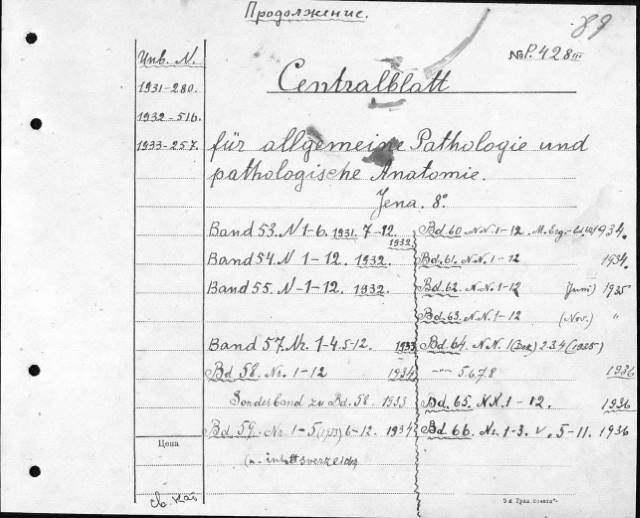 Продолжение.
89
№ P. 428 III
Инв. N.
1931-280.
1932-516.
1933-257.
Centralblatt
für allgemeine Pathologie und
pathologische Anatomie.
Jena. 8°.
Band 53. N 1-6. 1931. 7-12.
1932
Band 54. N 1-12. 1932.
Band 55. N-1-12. 1932.
Band 57. Nr. 1-4. 5-12. 1933
Bd. 58. Nr. 1-12 1934
Sonderband zu Bd. 58. 1933
Bd. 59. Nr. 1-5 6-12. 1934
Bd. 60. N.N. 1-12 1934.
Bd. 61. N.N. 1-12 1934.
Bd. 62. N.N. 1-12 (Juni) 1935
Bd. 63. N.N. 1-12 (Nov.) "
Bd. 64. N.N. 1 (Dez.) 2 3 4 (1935)
-"- 5 6 7 8 1936
Bd. 65. N.N. 1-12. 1936
Bd. 66. Nr. 1-3. 5-11. 1936
Цена